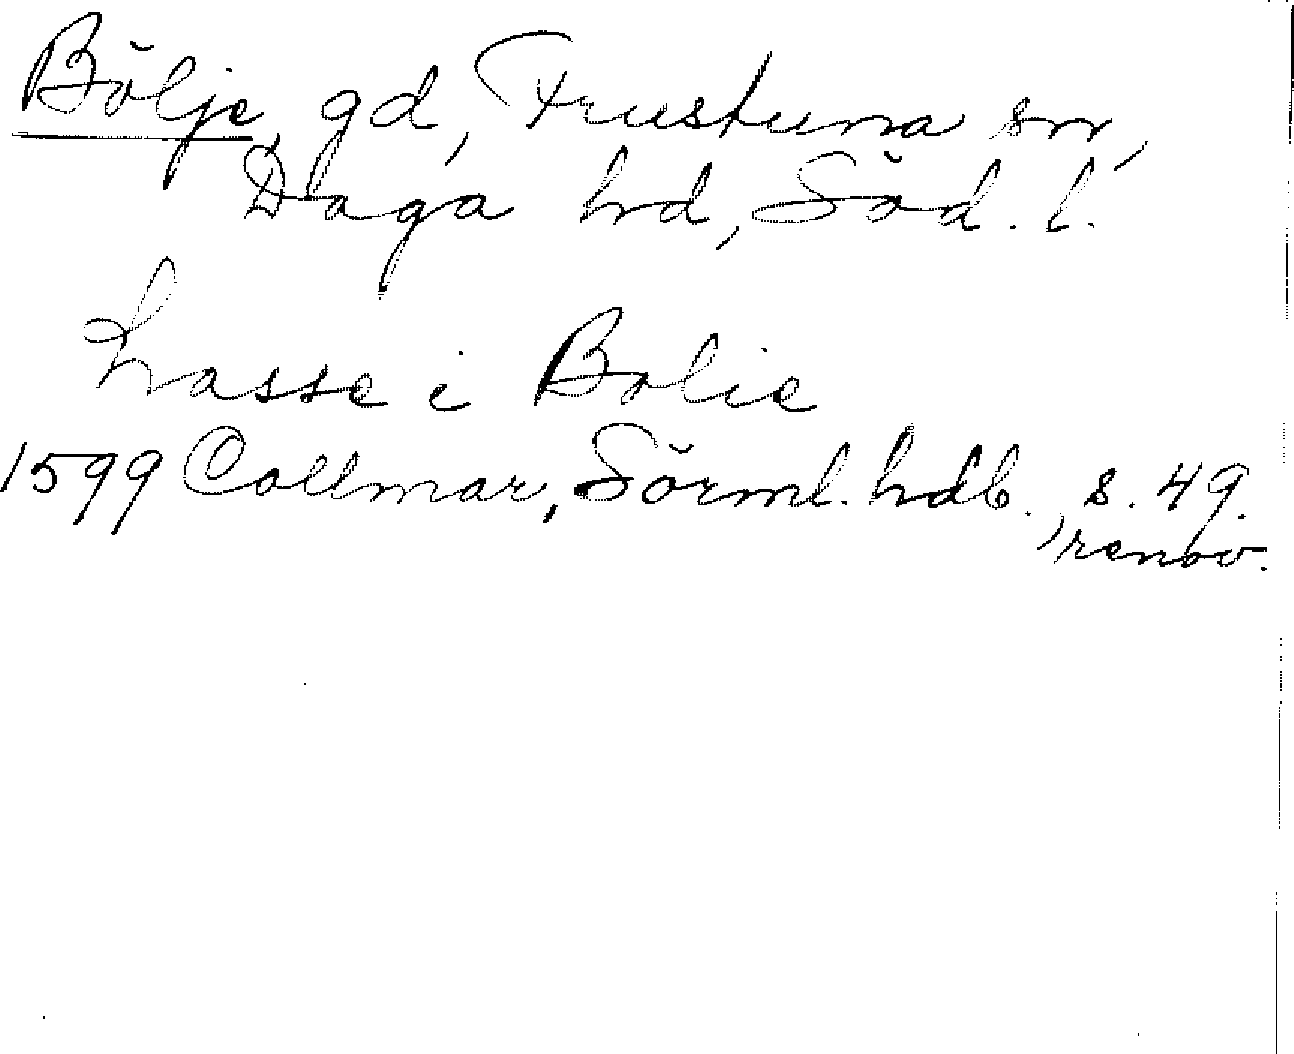 Bölje, gd, Frustuna sn,
Daga hd, Söd. l.
Lasse i Bolie
1599 Collmar, Sörml. hdb., s. 49.
, renov.